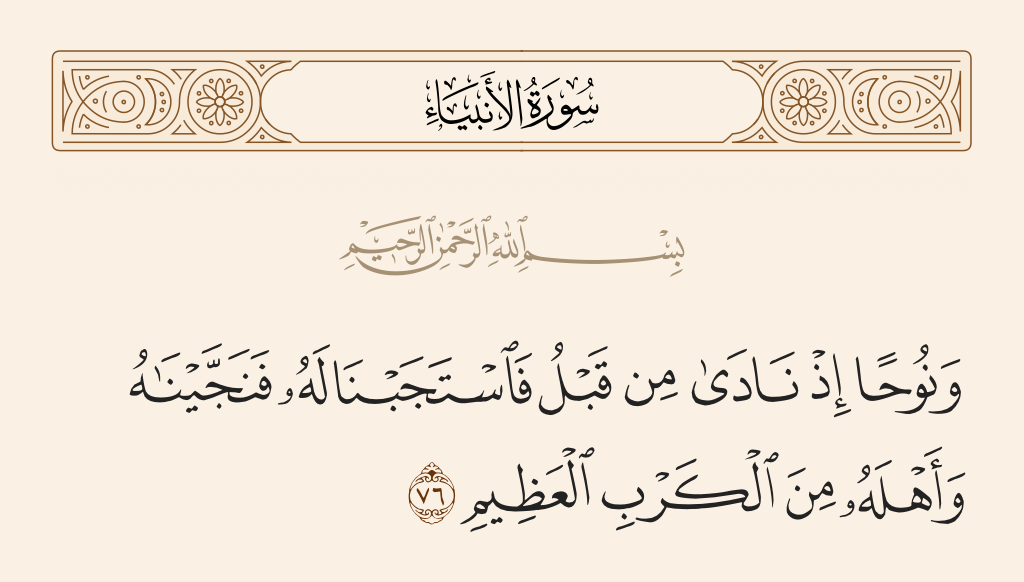 سُورَةُ الأَنبِيَاءِ
بِسْمِ ٱللَّهِ ٱلرَّحْمَٰنِ ٱلرَّحِيمِ
وَنُوحًا إِذْ نَادَىٰ مِن قَبْلُ فَٱسْتَجَبْنَا لَهُۥ فَنَجَّيْنَٰهُ
وَأَهْلَهُۥ مِنَ ٱلْكَرْبِ ٱلْعَظِيمِ ٧٦